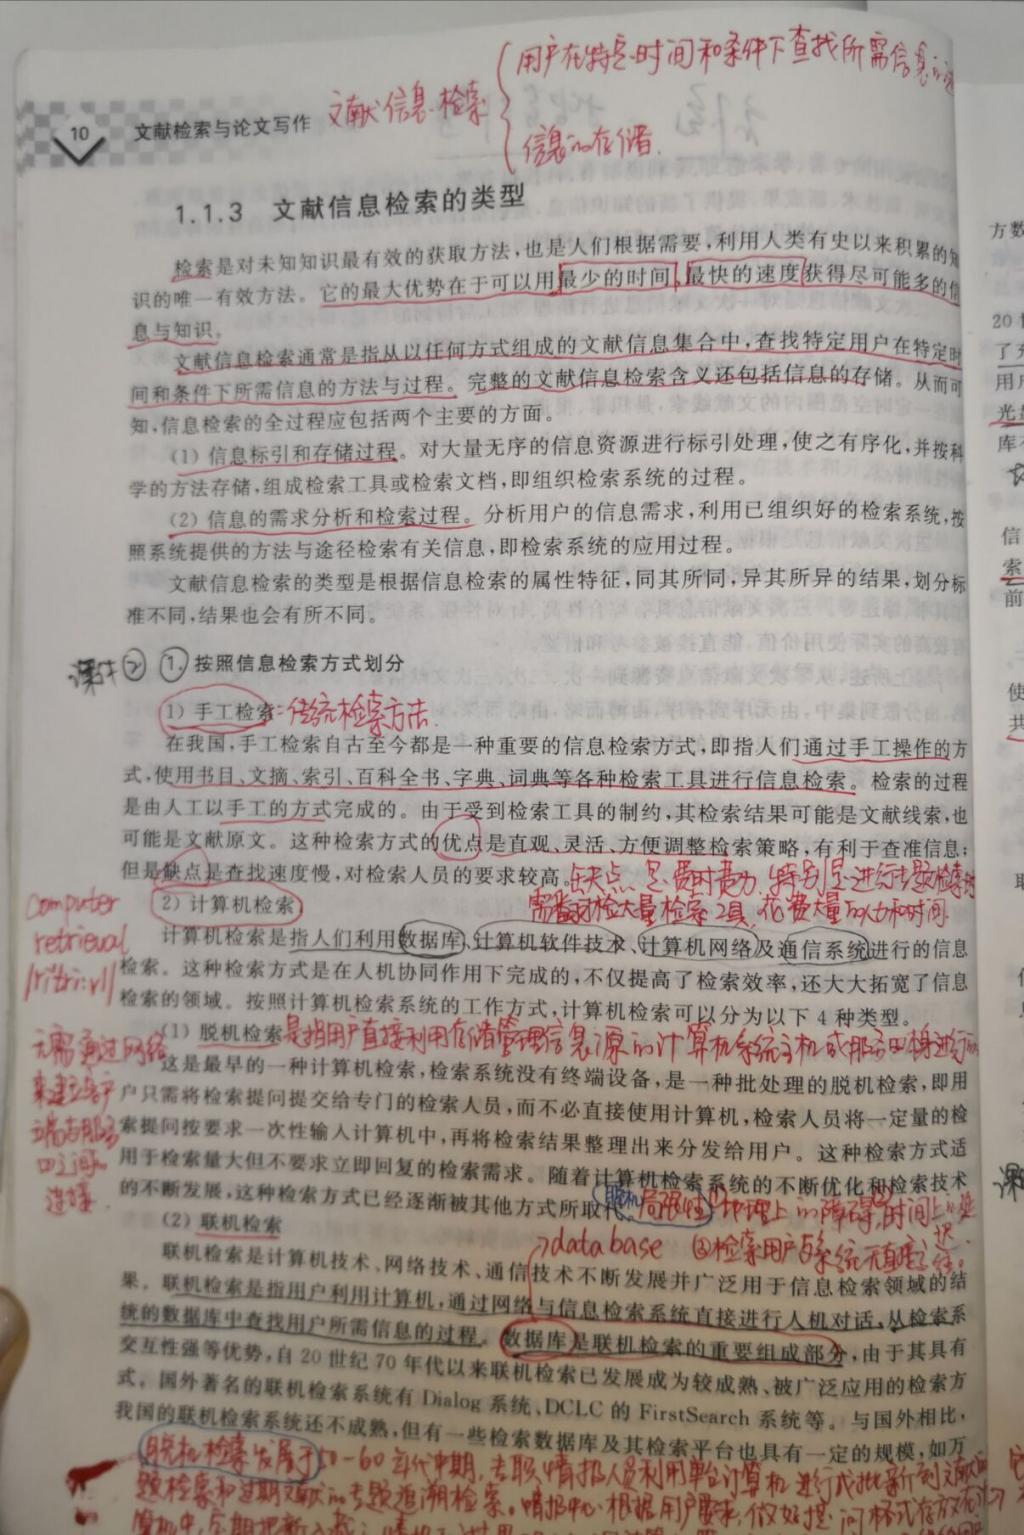 用户在特定时间和条件下查找所需信息的过
10 文献检索与论文写作 文献信息检索
信息的存储
1.1.3 文献信息检索的类型
检索是对未知知识最有效的获取方法,也是人们根据需要,利用人类有史以来积累的知
识的唯一有效方法。它的最大优势在于可以用最少的时间,最快的速度获得尽可能多的信
息与知识。
文献信息检索通常是指从以任何方式组成的文献信息集合中,查找特定用户在特定时
间和条件下所需信息的方法与过程。完整的文献信息检索含义还包括信息的存储。从而可
知,信息检索的全过程应包括两个主要的方面。
(1) 信息标引和存储过程。对大量无序的信息资源进行标引处理,使之有序化,并按科
学的方法存储,组成检索工具或检索文档,即组织检索系统的过程。
(2) 信息的需求分析和检索过程。分析用户的信息需求,利用已组织好的检索系统,按
照系统提供的方法与途径检索有关信息,即检索系统的应用过程。
文献信息检索的类型是根据信息检索的属性特征,同其所同,异其所异的结果,划分标
准不同,结果也会有所不同。
课件② 1. 按照信息检索方式划分
1) 手工检索:传统检索方法
在我国,手工检索自古至今都是一种重要的信息检索方式,即指人们通过手工操作的方
式,使用书目、文摘、索引、百科全书、字典、词典等各种检索工具进行信息检索。检索的过程
是由人工以手工的方式完成的。由于受到检索工具的制约,其检索结果可能是文献线索,也
可能是文献原文。这种检索方式的优点是直观、灵活、方便调整检索策略,有利于查准信息;
但是缺点是查找速度慢,对检索人员的要求较高。缺点是费时费力,特别是进行专题检索时
需要翻检大量检索工具,花费大量的人力和时间.
2) 计算机检索
computer
retrieval
/rɪˈtriːvl/
计算机检索是指人们利用数据库、计算机软件技术、计算机网络及通信系统进行的信息
检索。这种检索方式是在人机协同作用下完成的,不仅提高了检索效率,还大大拓宽了信息
检索的领域。按照计算机检索系统的工作方式,计算机检索可以分为以下 4 种类型。
(1) 脱机检索 是指用户直接利用存储管理信息源的计算机系统主机或服务口
无需通过网络
来建立客户
端与服务
口之间的
连接.
这是最早的一种计算机检索,检索系统没有终端设备,是一种批处理的脱机检索,即用
户只需将检索提问提交给专门的检索人员,而不必直接使用计算机,检索人员将一定量的检
索提问按要求一次性输入计算机中,再将检索结果整理出来分发给用户。这种检索方式适
用于检索量大但不要求立即回复的检索需求。随着计算机检索系统的不断优化和检索技术
的不断发展,这种检索方式已经逐渐被其他方式所取代。脱机局限性①地理上的障碍②时间上的延迟
(2) 联机检索
database ③检索用户与系统无直接
联机检索是计算机技术、网络技术、通信技术不断发展并广泛用于信息检索领域的结
果。联机检索是指用户利用计算机,通过网络与信息检索系统直接进行人机对话,从检索系
统的数据库中查找用户所需信息的过程。数据库是联机检索的重要组成部分,由于其具有
交互性强等优势,自 20 世纪 70 年代以来联机检索已发展成为较成熟、被广泛应用的检索方
式。国外著名的联机检索系统有 Dialog 系统、DCLC 的 FirstSearch 系统等。与国外相比,
我国的联机检索系统还不成熟,但有一些检索数据库及其检索平台也具有一定的规模,如万
脱机检索发展于50-60年代中期,专职情报人员利用单台计算机进行成批新到文献的
题检索和过期文献的专题追溯检索。情报中心根据用户要求,做好提问格式存放在
方数
20 世
了
用户
光
库
信
索
前
使
共